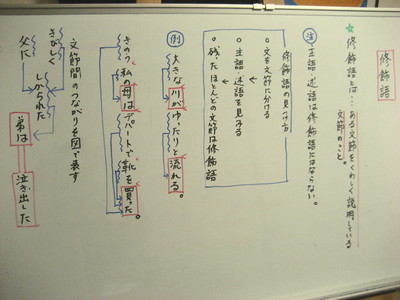 修飾語
☆修飾語とは…ある文節をくわしく説明している
文節のこと。
注 主語・述語は修飾語にはならない。
修飾語の見つけ方
○文を文節に分ける
○主語・述語を見つける
○残ったほとんどの文節は修飾語
例 大きな川がゆったりと流れる。
きのう私の母はデパートで靴を買った。
文節間のつながりを図で表す
きびしく
しかられた
父に
弟は
泣き出した